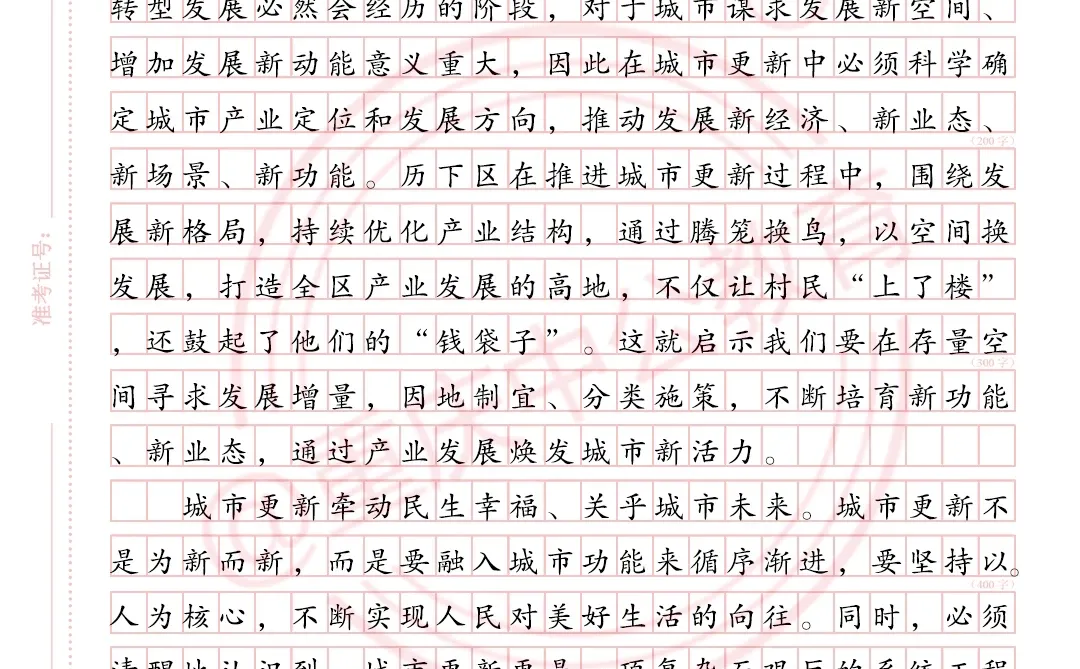 转型发展必然会经历的阶段，对于城市谋求发展新空间、
增加发展新动能意义重大，因此在城市更新中必须科学确
定城市产业定位和发展方向，推动发展新经济、新业态、
（200字）
新场景、新功能。历下区在推进城市更新过程中，围绕发
展新格局，持续优化产业结构，通过腾笼换鸟，以空间换
发展，打造全区产业发展的高地，不仅让村民“上了楼”
，还鼓起了他们的“钱袋子”。这就启示我们要在存量空
（300字）
间寻求发展增量，因地制宜、分类施策，不断培育新功能
、新业态，通过产业发展焕发城市新活力。
城市更新牵动民生幸福、关乎城市未来。城市更新不
是为新而新，而是要融入城市功能来循序渐进，要坚持以。
（400字）
人为核心，不断实现人民对美好生活的向往。同时，必须
清醒地认识到，城市更新更是一项复杂而艰巨的系统工程
准考证号：
@重庆中公教育